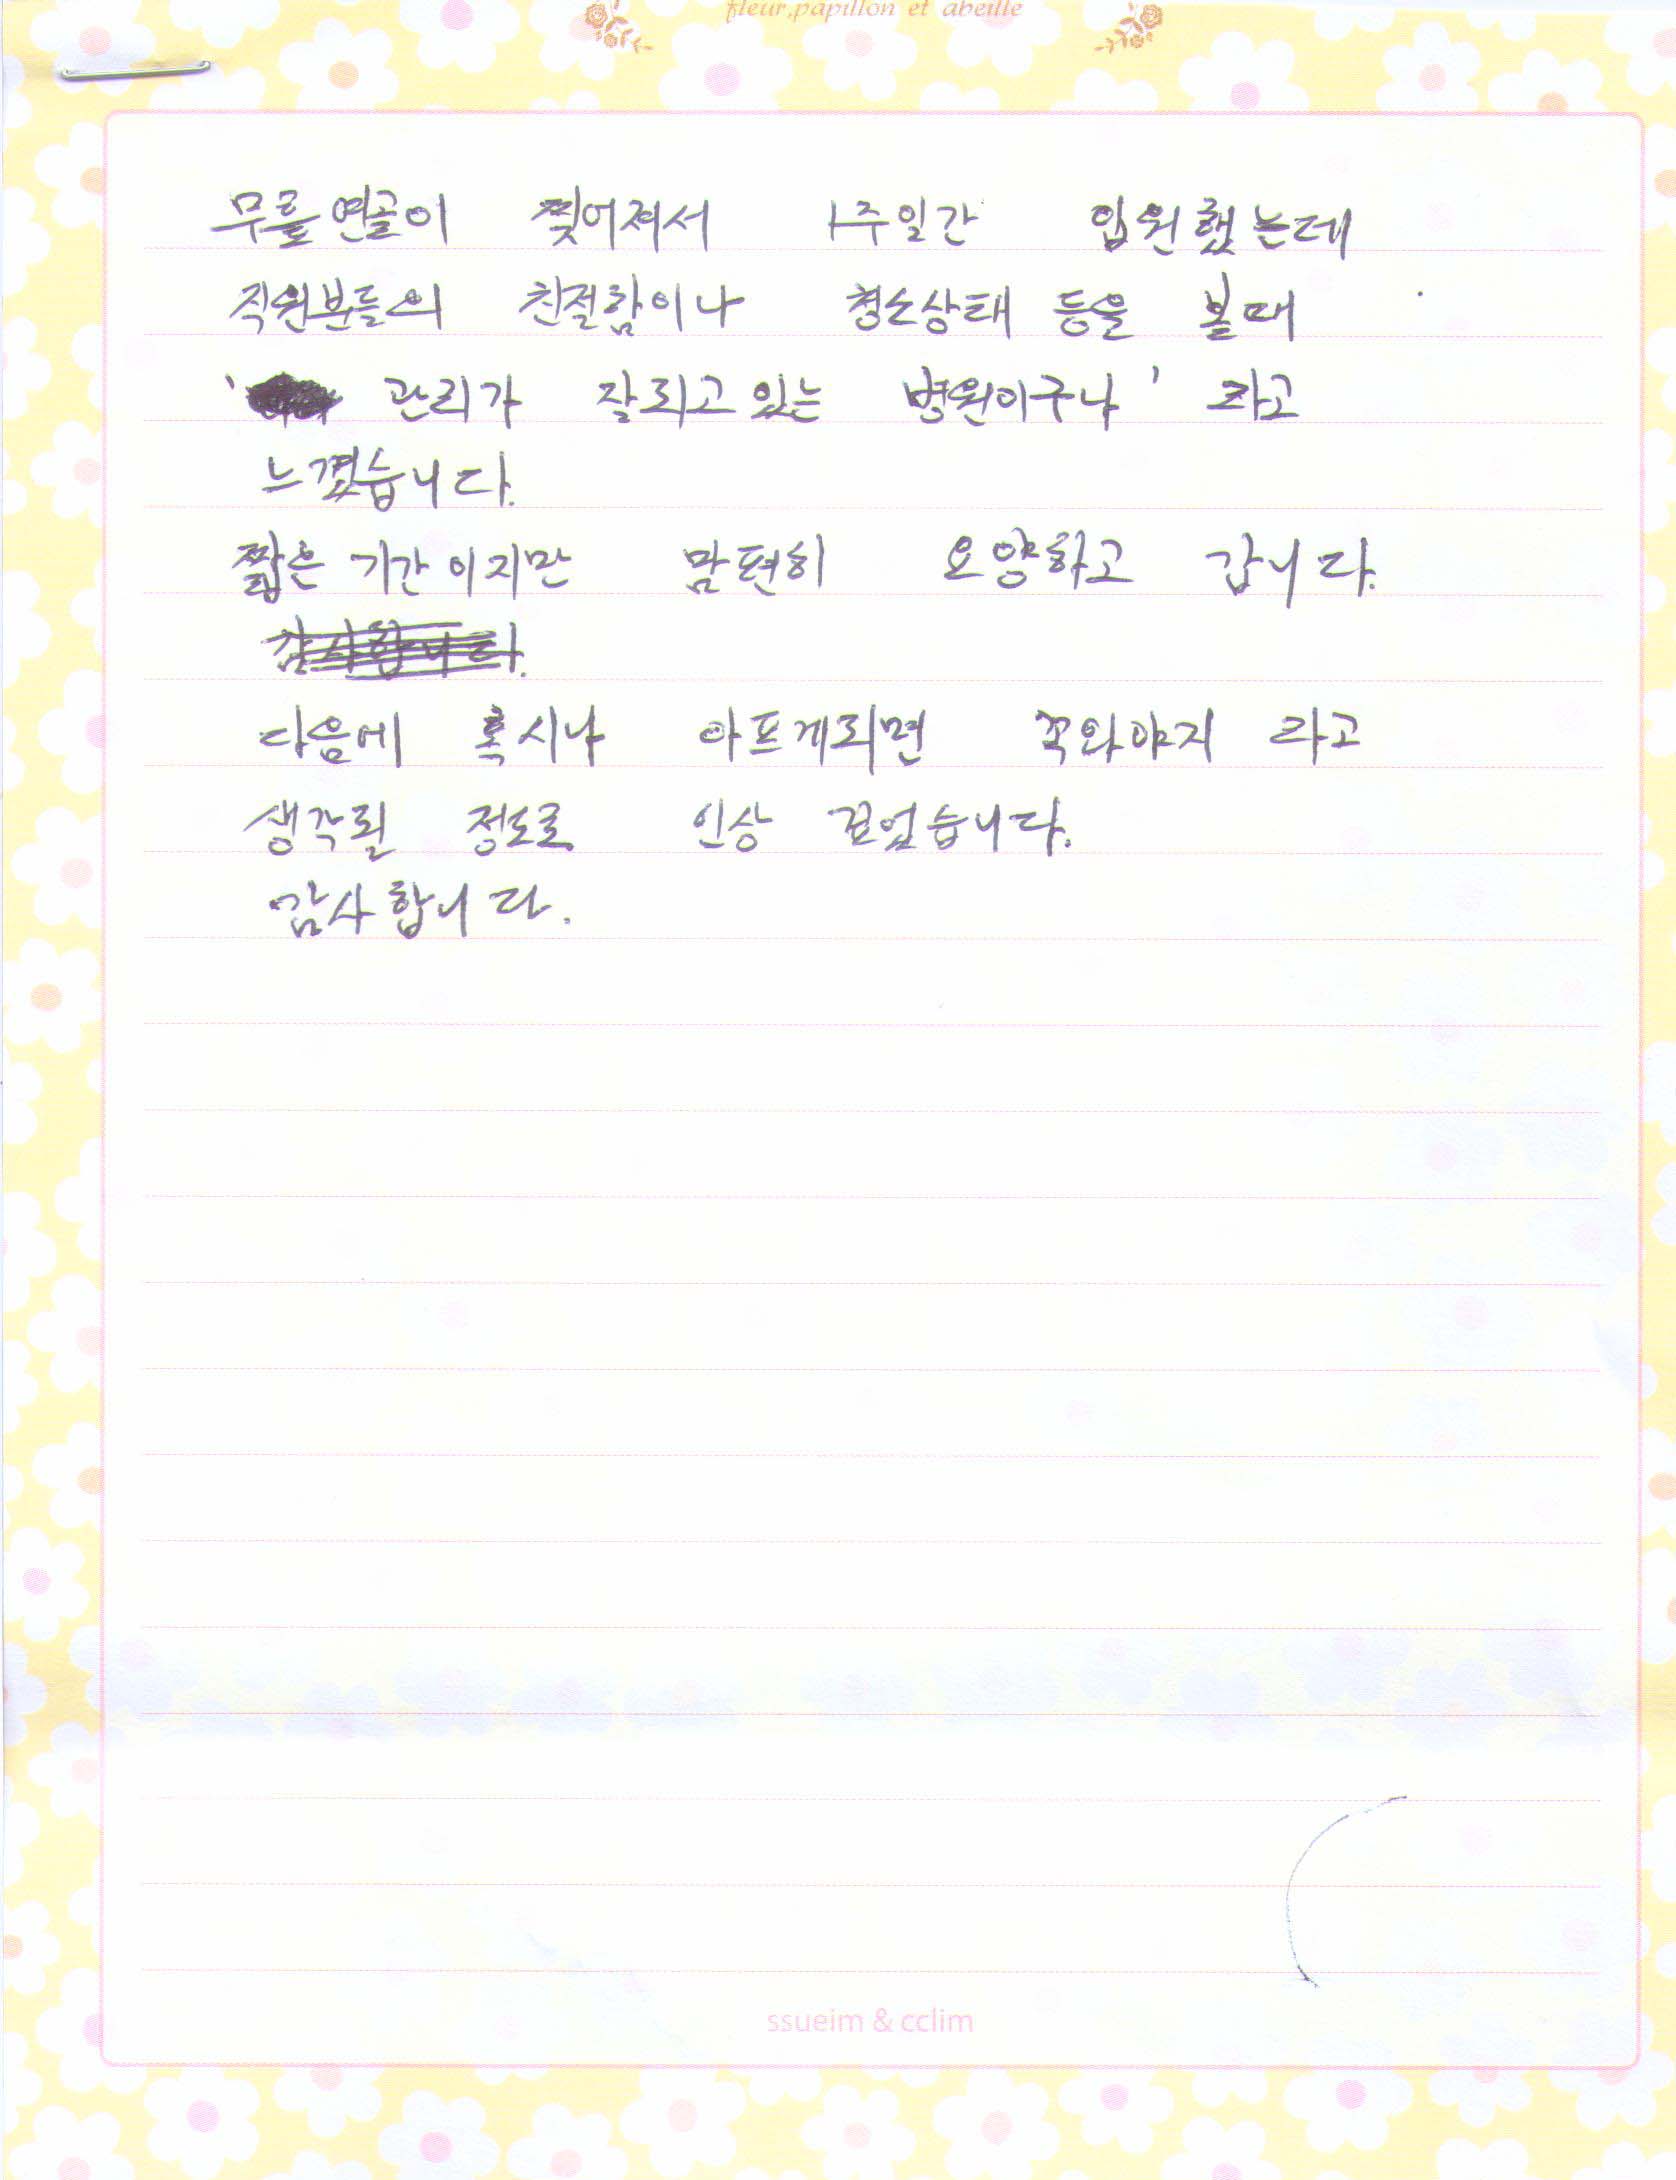 fleur,papillon et abeille
무릎 연골이 찢어져서 1주일간 입원했는데
직원분들의 친절함이나 청소상태 등을 볼때
' 관리가 잘되고 있는 병원이구나' 라고
느꼈습니다.
짧은 기간이지만 맘편히 요양하고 갑니다.
감사합니다.
다음에 혹시나 아프게되면 꼭와야지 라고
생각될 정도로 인상 깊었습니다.
감사합니다.
ssueim & cclim